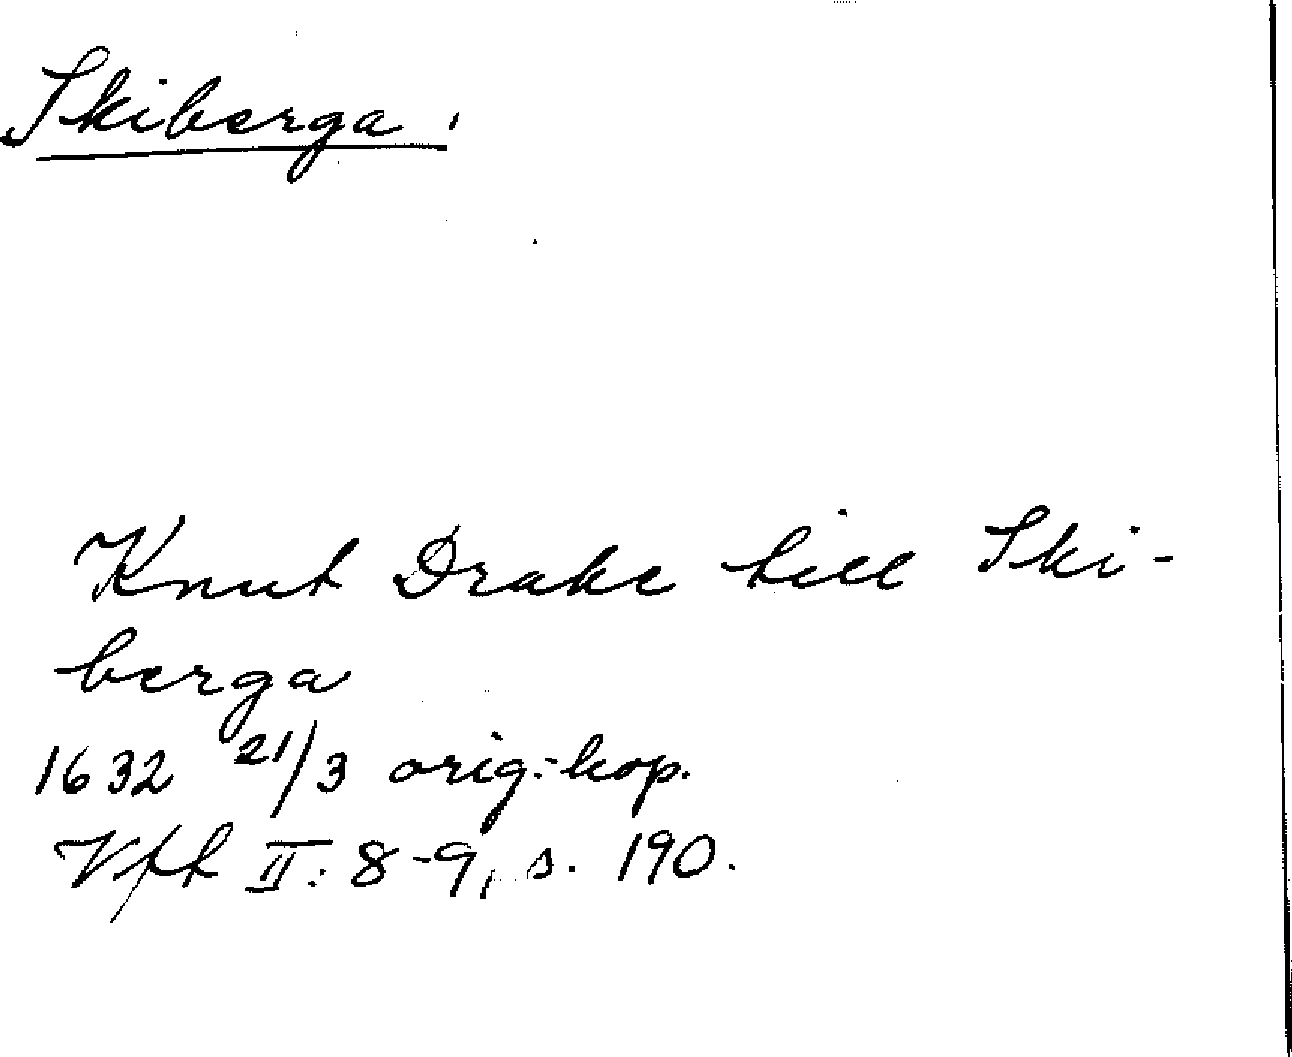 Skiberga.
Knut Drake till Ski-
berga
1632 21/3 orig:kop.
Vfh II: 8-9, s. 190.